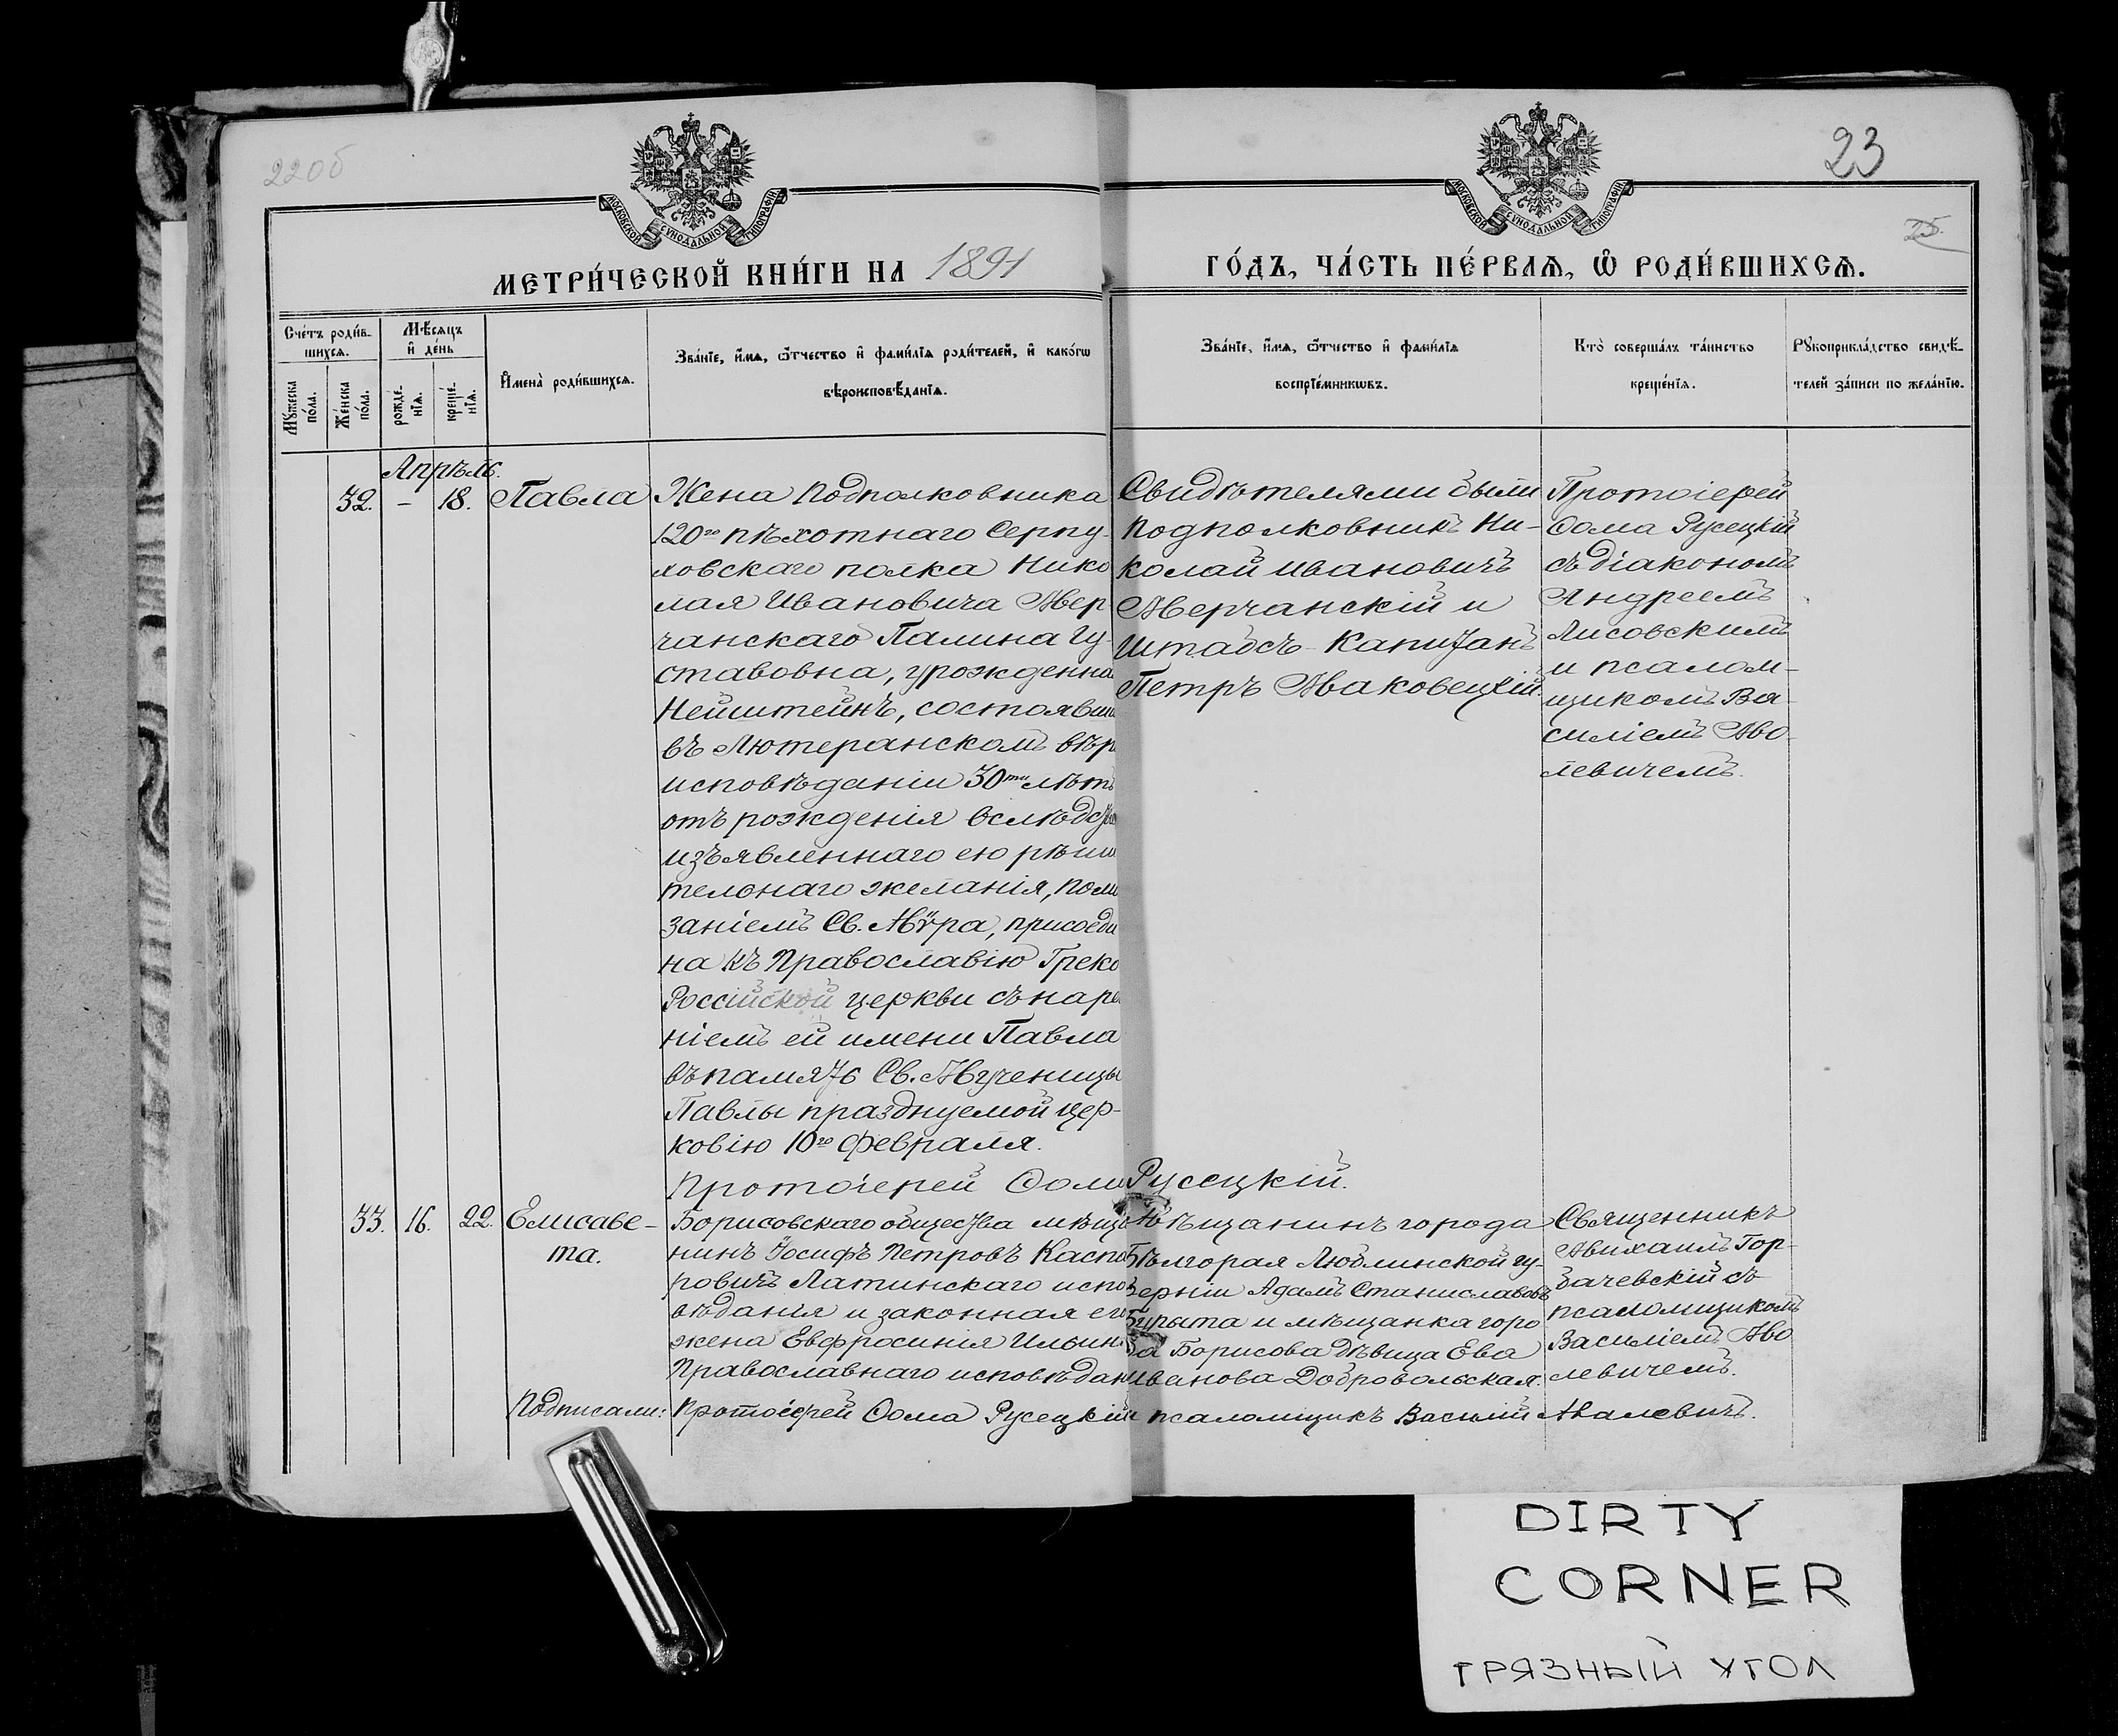 22об
23
25.
МОСКОВСКОЙ СѴНОДАЛЬНОЙ ТИПОГРАФІИ
МОСКОВСКОЙ СѴНОДАЛЬНОЙ ТИПОГРАФІИ
МЕТРИ́ЧЕСКОЙ КНИ́ГИ НА 1891
ГО́ДЪ, ЧА́СТЬ ПЕ́РВАѦ, Ѡ РОДИ́ВШИХСѦ.
Сче́тъ роди́в-
шихсѧ.
Мꙋ́жеска
по́ла.
Же́нска
по́ла.
Мѣ́сѧцъ
и҆ де́нь
рожде́-
нїѧ.
креще́-
нїѧ.
И҆мена̀ роди́вшихсѧ.
Зва́нїе, и҆́мѧ, ѻ҆́тчество и҆ фами́лїѧ роди́телей, и҆ како́гѡ
вѣроисповѣ́данїѧ.
Зва́нїе, и҆́мѧ, ѻ҆́тчество и҆ фами́лїѧ
воспрїе́мникѡвъ.
Кто̀ соверша́лъ та́инство
креще́нїѧ.
Рꙋкоприкла́дство свидѣ́-
телей за́писи по жела́нїю.
Апрѣль.
32. – 18. Павла
Жена Подполковника
120го пѣхотнаго Серпу-
ховскаго полка Нико
лая Ивановича Мер
чанскаго Палина Гу-
ставовна, урожденна
Нейштейнъ, состоявша
въ Лютеранскомъ вѣр
исповѣданіи 30ти лѣтъ
отъ рожденія вслѣдств
изъявленнаго ею рѣши
тельнаго желанія, пома
заніемъ Св. Мѵра, присоеди
на къ Православію Греко
Россійской церкви съ наре
ніемъ ей имени Павла
въ память Св. Мученицы
Павлы празднуемой цер-
ковію 10го Февраля.
Свидѣтелями были
Подполковникъ Ни-
колай Ивановичъ
Мерчанскій и
Штабсъ-Капитанъ
Петръ Маковецкій.
Протоіерей
Ѳома Русецкій
съ діакономъ
Андреемъ
Лисовскимъ
и псалом-
щикомъ Ва-
силіемъ Мо-
левичемъ.
Протоіерей Ѳома Русецкій.
33. 16. 22. Елисаве-
та.
Борисовскаго общества мѣща
нинъ Іосифъ Петровъ Каспе
ровичъ Латинскаго испо
вѣданія и законная его
жена Евфросинія Ильин
Православнаго исповѣдан
Мѣщанинъ города
Бѣлгорая Люблинской гу-
берніи Адамъ Станиславовъ
и мѣщанка горо
да Борисова дѣвица Ева
Иванова Добровольская.
Священникъ
Михаилъ Гор-
бачевскій съ
псаломщикомъ
Василіемъ Мо
левичемъ.
Подписали: Протоіерей Ѳома Русецкій и псаломщикъ Василій Малевичъ.
DIRTY
CORNER
ГРЯЗНЫЙ УГОЛ